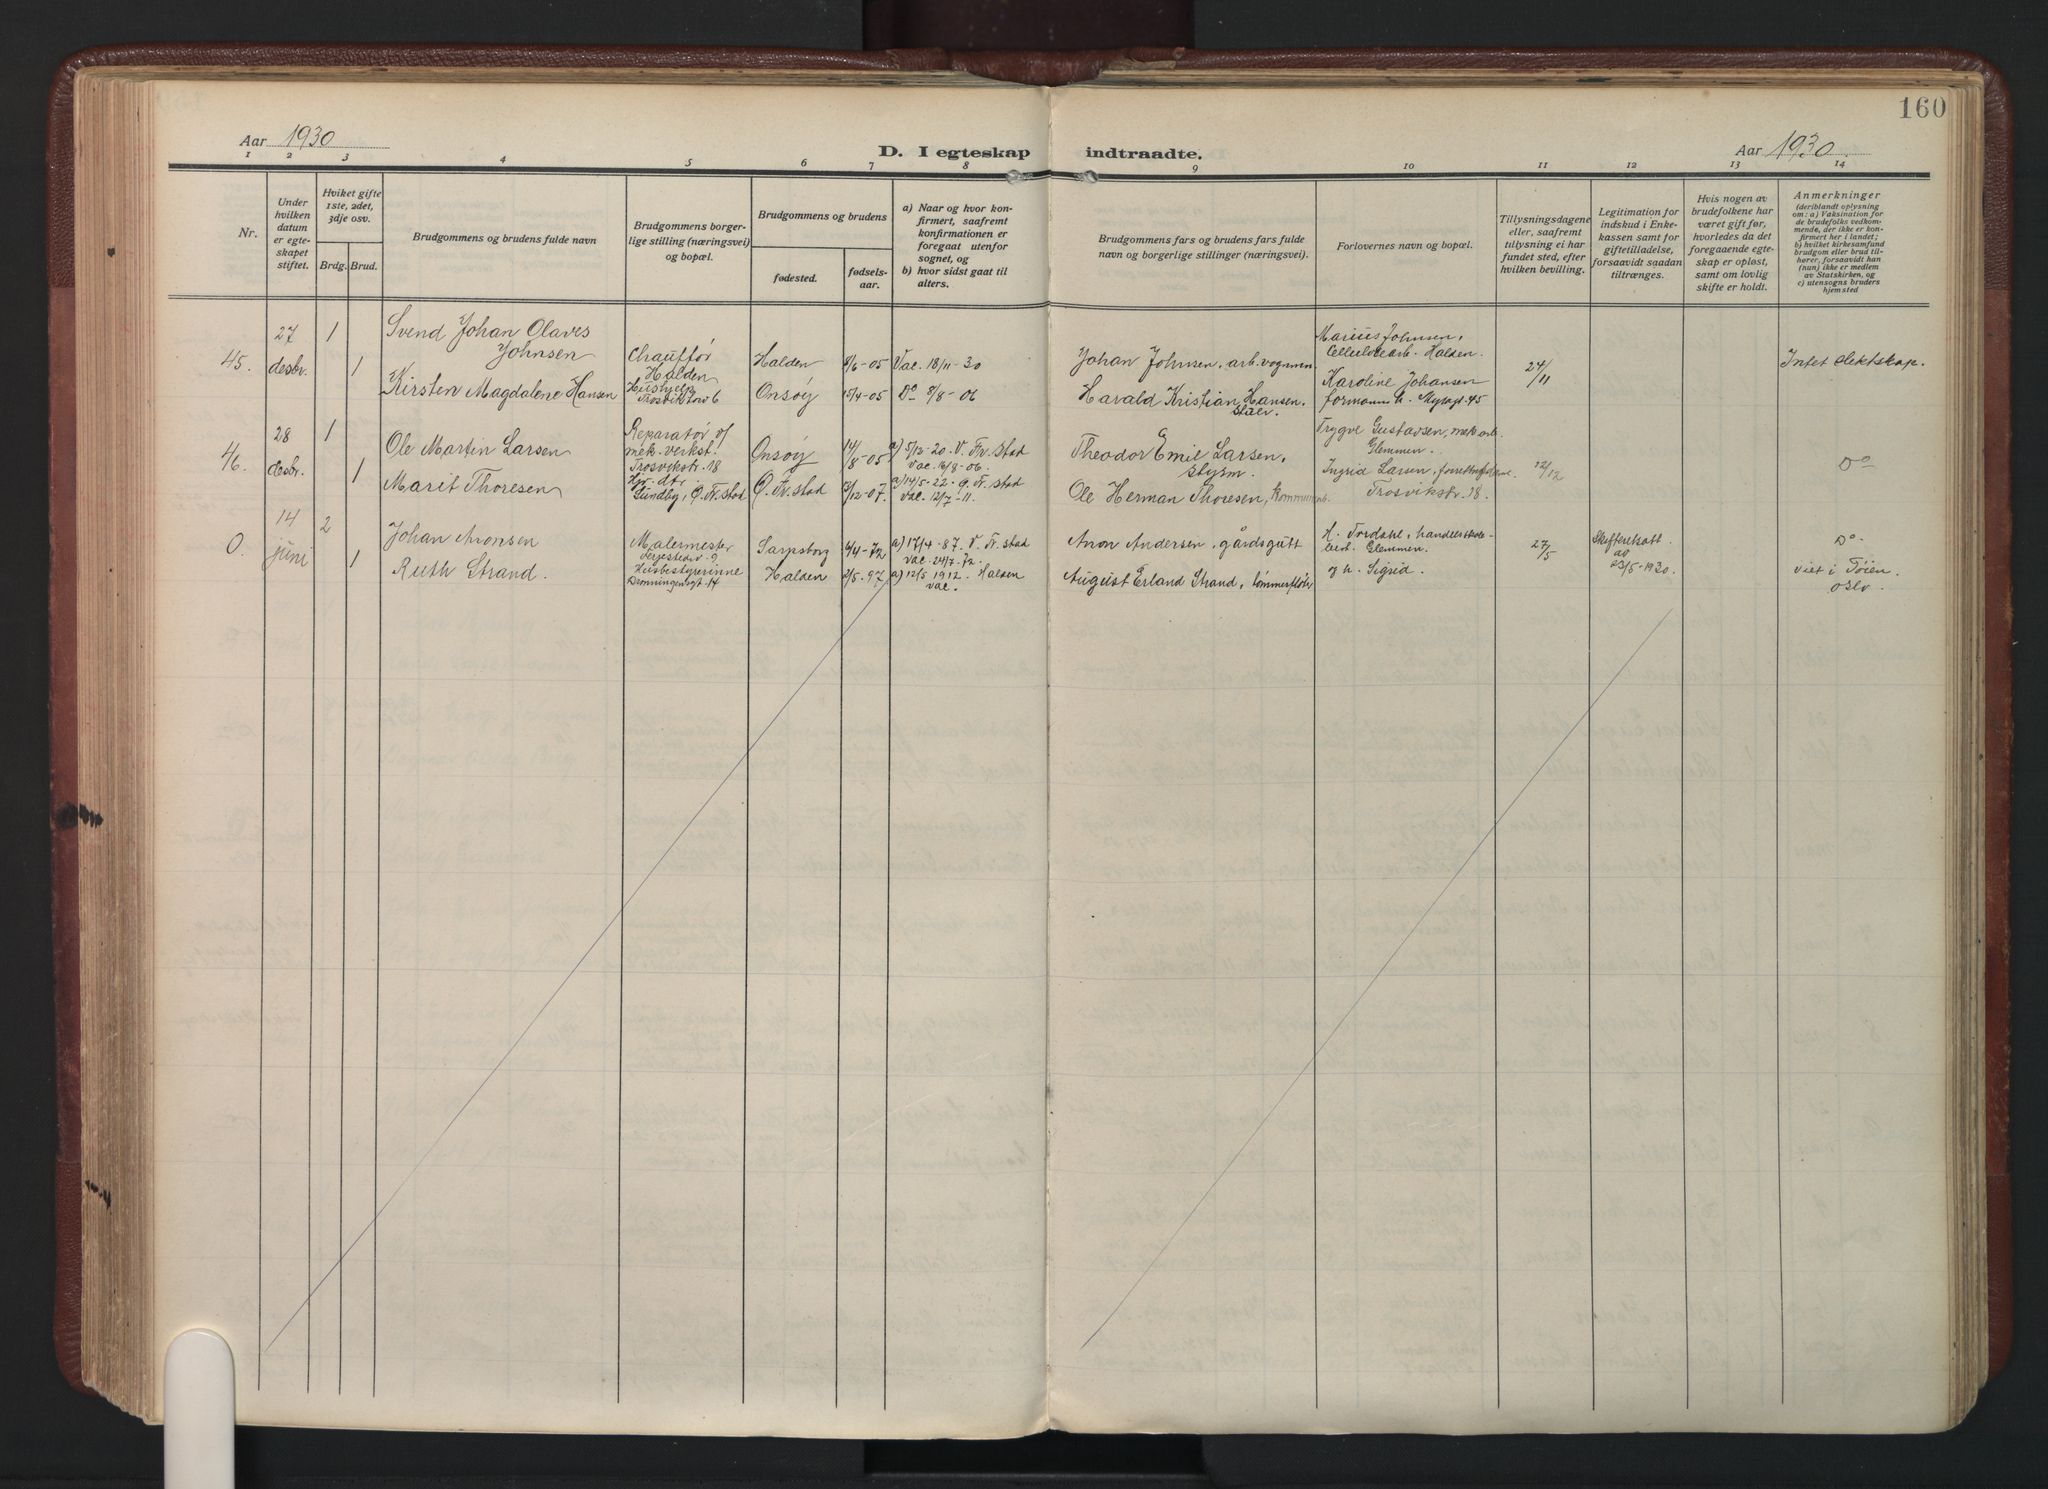 160
Aar 1930
D. I egteskap indtraadte.
Aar 1930.
1 2 3 4 5 6 7 8 9 10 11 12 13 14
Nr.
Under hvilken datum er egteskapet stiftet.
Hviket gifte 1ste, 2det, 3dje osv.
Brdg. Brud.
Brudgommens og brudens fulde navn
Brudgommens borgerlige stilling (næringsvei) og bopæl.
Brudgommens og brudens
fødested.
fødselsaar.
a) Naar og hvor konfirmert, saafremt konfirmationen er foregaat utenfor sognet, og
b) hvor sidst gaat til alters.
Brudgommens fars og brudens fars fulde navn og borgerlige stillinger (næringsvei).
Forlovernes navn og bopæl.
Tillysningsdagene eller, saafremt tillysning ei har fundet sted, efter hvilken bevilling.
Legitimation for indskud i Enkekassen samt for giftetilladelse, forsaavidt saadan tiltrænges.
Hvis nogen av brudefolkene har været gift før, hvorledes da det foregaaende egteskap er opløst, samt om lovlig skifte er holdt.
Anmerkninger
(deriblandt oplysning om: a) Vaksination for de brudefolks vedkommende, der ikke er konfirmert her i landet; b) hvilket kirkesamfund brudgom eller brud tilhører, forsaavidt han (hun) ikke er medlem av Statskirken, og c) utensogns bruders hjemsted
45.
27 desbr.
1
1
Svend Johan Olaves Johnsen
Kirsten Magdalene Hansen
Chauffør Halden
Hushjelp
Halden
Onsøy
8/6-05
15/4-05
Vac. 18/11-30
Do 8/8-06
Johan Johnsen, arb. vognmn
Harald Kristian Hansen,
Marius Johnsen,
Cellulosearb. Halden.
Karoline Johansen
formanns h.
24/11
Intet slektskap.
46.
28 desbr.
1
1
Ole Martin Larsen
Marit Thoresen
Reparatør v/
mek. verkst.
Trosvikstr. 18
Sundby, Ø. Fr. stad
Onsøy
Ø. Fr. stad
14/8-05
3/12-07.
a) 5/12-20. V. Fr. stad
Vac. 16/8-06.
a) 14/5-22. Ø. Fr. stad
Vac. 12/7-11.
Theodor Emil Larsen,
Ole Herman Thoresen,
Trygve Gustavsen, mek arb.
Glemmen.
Ingrid Larsen,
Trosvikstr. 18.
12/12
Do
0.
14 juni
2
1
Johan Aronsen
Ruth Strand.
Malermester
Husbestyrerinne
Dronningensgt. 14
Sarpsborg
Halden
4/4-72
2/5.97
a) 17/4-87. V. Fr. stad
Vac. 24/7-72.
a) 12/5 1912. Halden
Vac.
Aron Andersen, gårdsgutt
August Erland Strand, tømmerfløter
H. Tordahl,
Glemmen.
og h. Sigrid.
27/5
Skifteattest
av
23/5-1930.
Do.
viet i Tøien,
Oslo.